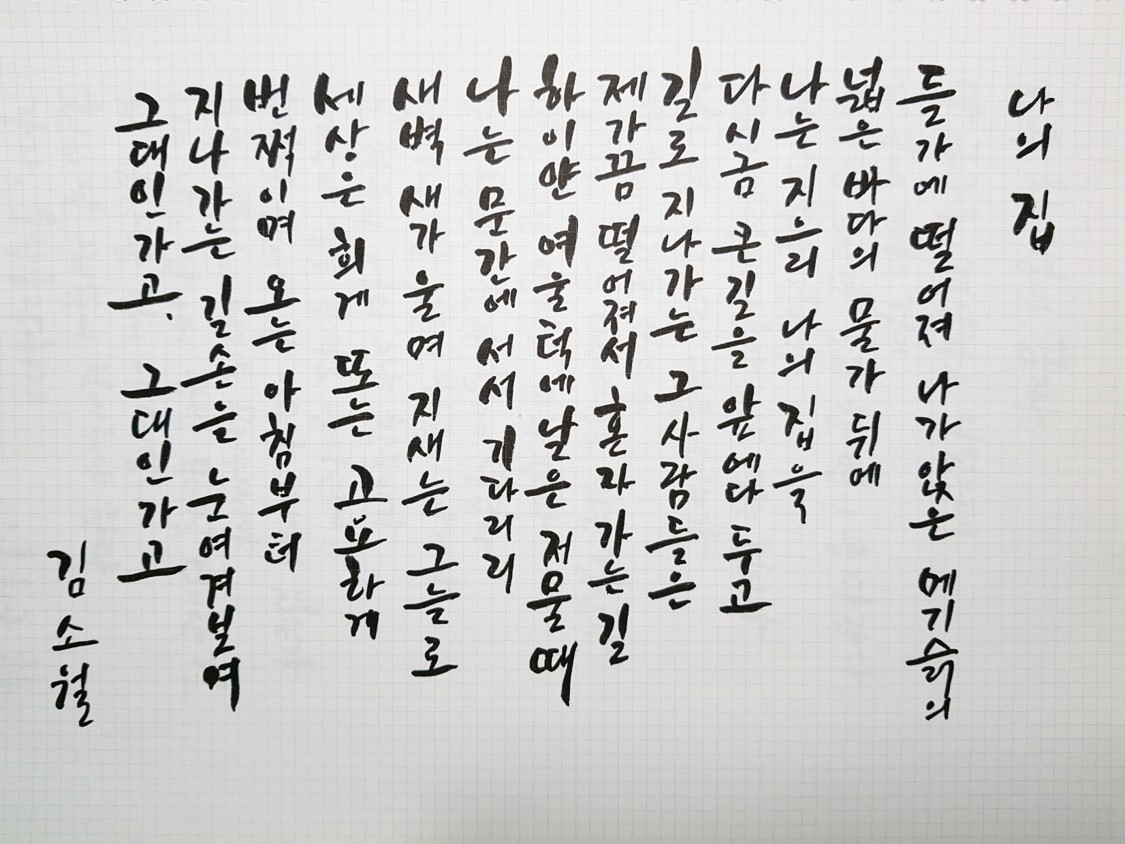 나의 집
들가에 떨어져 나가 앉은 메기슭의
넓은 바다의 물가 뒤에
나는 지으리 나의 집을
다시금 큰길을 앞에다 두고
길로 지나가는 그 사람들은
제가끔 떨어져서 혼자 가는 길
하이얀 여울턱에 날은 저물 때
나는 문간에 서서 기다리리
새벽 새가 울며 지새는 그늘로
세상은 희게 또는 고요하게
번쩍이며 오는 아침부터
지나가는 길손을 눈여겨보며
그대인가고, 그대인가고
김소월